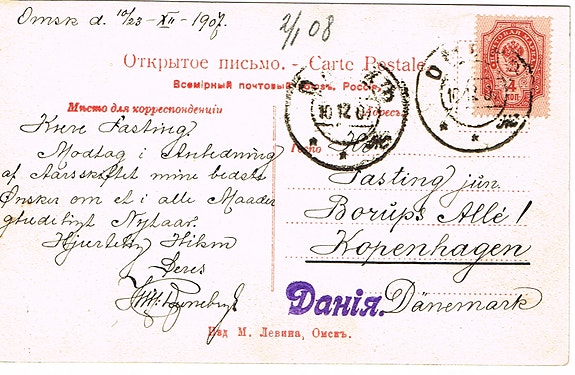 Omsk d. 10/23-XII-1907.
2/1 08
Открытое письмо. - Carte Postale.
Всемірный почтовый союзъ. Россія.
Мѣсто для корреспонденціи
Адресъ.
Kære Tasting,
Modtag i Anledning
af Aarsskiftet mine bedste
Ønsker om et i alle Maader
glædeligt Nytaar.
Hjertelig Hilsen
Deres
10 12 07
10 12 07
4 КОП.
Herr
Tasting jun.
Borups Allé!
Kopenhagen
Данія. Dänemark
Изд М. Левина, Омскъ.